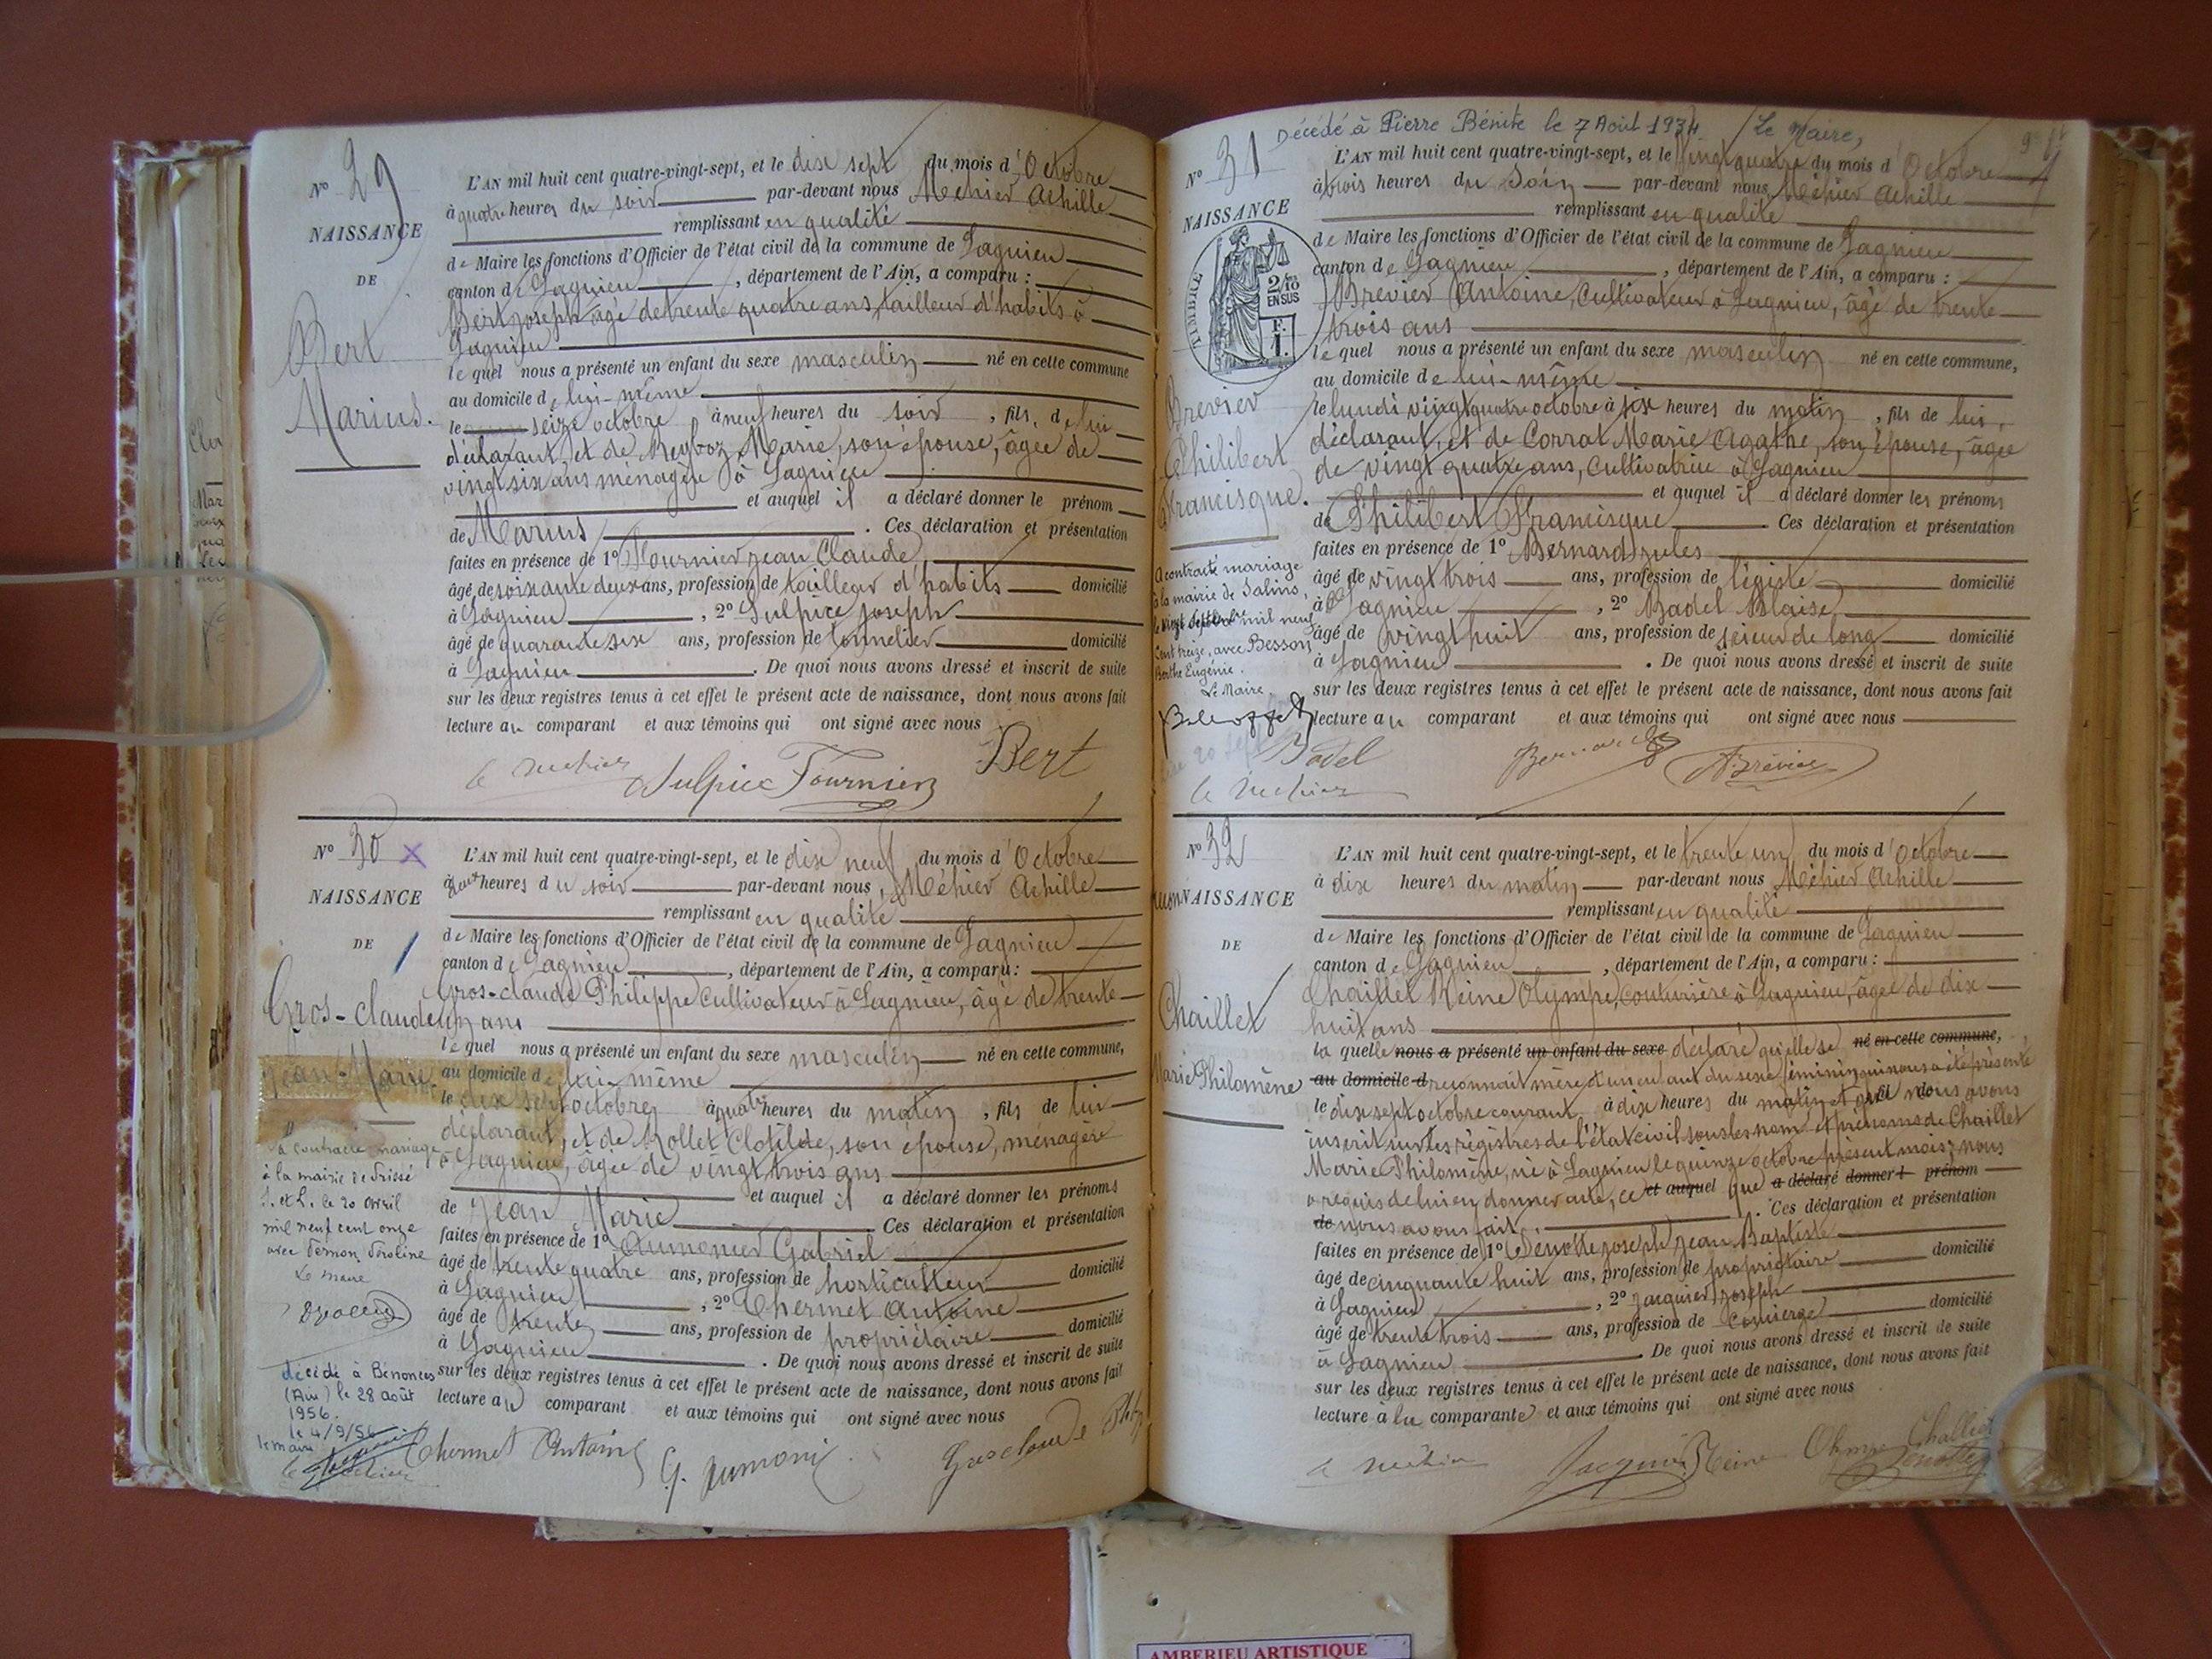 N° 29
NAISSANCE
DE
Bert
Marius.
L'AN mil huit cent quatre-vingt-sept, et le dix sept du mois d'Octobre
à quatre heures du soir par-devant nous Méhier Achille
remplissant en qualité
de Maire les fonctions d'Officier de l'état civil de la commune de Lagnieu
canton de Lagnieu, département de l'Ain, a comparu :
Bert Joseph âgé de trente quatre ans, tailleur d'habits à
Lagnieu
lequel nous a présenté un enfant du sexe masculin né en cette commune
au domicile de lui-même
le seize octobre à neuf heures du soir, fils de lui
déclarant, et de Meyboz Marie, son épouse, âgée de
vingt six ans ménagère à Lagnieu
et auquel il a déclaré donner le prénom
de Marius. Ces déclaration et présentation
faites en présence de 1° Fournier Jean Claude
âgé de soixante deux ans, profession de tailleur d'habits domicilié
à Lagnieu, 2° Sulpice Joseph
âgé de quarante six ans, profession de tonnelier domicilié
à Lagnieu. De quoi nous avons dressé et inscrit de suite
sur les deux registres tenus à cet effet le présent acte de naissance, dont nous avons fait
lecture au comparant et aux témoins qui ont signé avec nous
A Méhier Sulpice Fournier Bert
N° 30 X
NAISSANCE
DE
Gros-claude
Jean-Marie
a contracté mariage
à la mairie de Prissé
S. et L. le 20 Avril
mil neuf cent onze
avec
Le maire
décédé à Bénonces
(Ain) le 28 août
1956.
le 4/9/56
le maire
L'AN mil huit cent quatre-vingt-sept, et le dix neuf du mois d'Octobre
à heures du soir par-devant nous Méhier Achille
remplissant en qualité
de Maire les fonctions d'Officier de l'état civil de la commune de Lagnieu
canton de Lagnieu, département de l'Ain, a comparu :
Gros-claude Philippe Cultivateur à Lagnieu, âgé de trente
un ans
lequel nous a présenté un enfant du sexe masculin né en cette commune,
au domicile de lui même
le dix sept octobre à quatre heures du matin, fils de lui
déclarant, et de Rollet Clotilde, son épouse, ménagère
à Lagnieu, âgée de vingt trois ans
et auquel il a déclaré donner les prénoms
de Jean Marie. Ces déclaration et présentation
faites en présence de 1° Aumonier Gabriel
âgé de trente quatre ans, profession de horticulteur domicilié
à Lagnieu, 2° Chermet Antoine
âgé de trente ans, profession de propriétaire domicilié
à Lagnieu. De quoi nous avons dressé et inscrit de suite
sur les deux registres tenus à cet effet le présent acte de naissance, dont nous avons fait
lecture au comparant et aux témoins qui ont signé avec nous
Chermet Antoine G. Aumonier Grosclaude
Décédé à Pierre Bénite le 7 Août 1934 Le Maire,
N° 31
NAISSANCE
TIMBRE
2/10
EN SUS
F.
1.
Brevier
Philibert
Francisque.
A contracté mariage
à la mairie de Salins,
le vingt septembre mil neuf
cent treize, avec Besson
Berthe Eugénie.
Le Maire.
L'AN mil huit cent quatre-vingt-sept, et le vingt quatre du mois d'Octobre
à trois heures du soir par-devant nous Méhier Achille
remplissant en qualité
de Maire les fonctions d'Officier de l'état civil de la commune de Lagnieu
canton de Lagnieu, département de l'Ain, a comparu :
Brevier Antoine, Cultivateur à Lagnieu, âgé de trente
trois ans
lequel nous a présenté un enfant du sexe masculin né en cette commune,
au domicile de lui-même
le lundi vingt quatre octobre à six heures du matin, fils de lui,
déclarant, et de Corrat Marie Agathe, son épouse, âgée
de vingt quatre ans, Cultivatrice à Lagnieu
et auquel il a déclaré donner les prénoms
de Philibert Francisque Ces déclaration et présentation
faites en présence de 1° Bernard Jules
âgé de vingt trois ans, profession de légiste domicilié
à Lagnieu, 2° Badel Blaise
âgé de vingt huit ans, profession de scieur de long domicilié
à Lagnieu. De quoi nous avons dressé et inscrit de suite
sur les deux registres tenus à cet effet le présent acte de naissance, dont nous avons fait
lecture au comparant et aux témoins qui ont signé avec nous
Badel Bernard Brévier
N° 32
NAISSANCE
DE
Chaillet
Marie Philomène
L'AN mil huit cent quatre-vingt-sept, et le trente un du mois d'Octobre
à dix heures du matin par-devant nous Méhier Achille
remplissant en qualité
de Maire les fonctions d'Officier de l'état civil de la commune de Lagnieu
canton de Lagnieu, département de l'Ain, a comparu :
Chaillet Reine Olympe, couturière à Lagnieu, âgée de dix
huit ans
laquelle nous a présenté un enfant du sexe déclaré qu'elle se né en cette commune,
au domicile d reconnait mère d'un enfant du sexe féminin qui nous a été présenté
le dix sept octobre courant à dix heures du matin et que nous avons
inscrit sur les registres de l'état civil sous les nom et prénoms de Chaillet
Marie Philomène, né à Lagnieu le quinze octobre présent mois; nous
a requis de lui en donner acte, ce et auquel que a déclaré donner l prénom
de nous avons fait. Ces déclaration et présentation
faites en présence de 1° Joseph Jean Baptiste
âgé de cinquante huit ans, profession de propriétaire domicilié
à Lagnieu, 2° Jacquier Joseph
âgé de trente trois ans, profession de Concierge domicilié
à Lagnieu. De quoi nous avons dressé et inscrit de suite
sur les deux registres tenus à cet effet le présent acte de naissance, dont nous avons fait
lecture à la comparante et aux témoins qui ont signé avec nous
Jacquier Reine Olympe Chaillet
AMBERIEU ARTISTIQUE